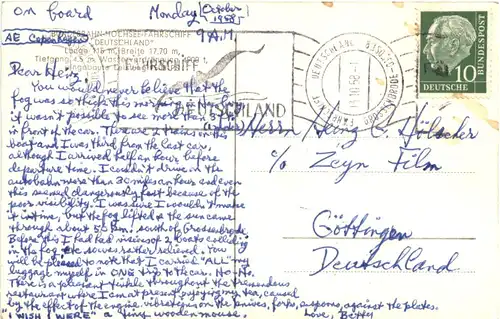 on board Monday October 1958
AE Copenhagen 9 A.M.
HOCHSEE-FÄHRSCHIFF
"DEUTSCHLAND"
Breite 17,70 m,
FÄHRSCHIFF
DEUTSCHLAND
DEUTSCHE BUNDESPOST
10
Dear Heinz,
You would never believe that the
fog was so thick this morning in
it wasn't possible to see more than
in front of the car. There are 2 trains on this
boat and I was third from the last car,
although I arrived half an hour before
departure time. I couldn't drive on the
autobahn more than 30 miles an hour and even
this seemed dangerously fast because of the
poor visibility. I was sure I wouldn't make
it in time, but the fog lifted & the sun came
through about 50 km. south of Grossenbrode.
Before this I had had visions of 2 boats colliding
in the fog, etc. so was rather relieved. You
will be pleased to note that I carried "ALL" my
luggage myself in ONE trip to the car. Ho-Ho.
There is a pleasant tinkle throughout the tremendous
restaurant where I am at present enjoying my tea, caused
by the effect of the engine vibrations on the knives, forks, spoons, against the plates.
"I WISH I WERE" a tiny wooden mouse. Love, Betty
Herrn Heinz G. Hölscher
c/o Zeyn Film
Göttingen
Deutschland